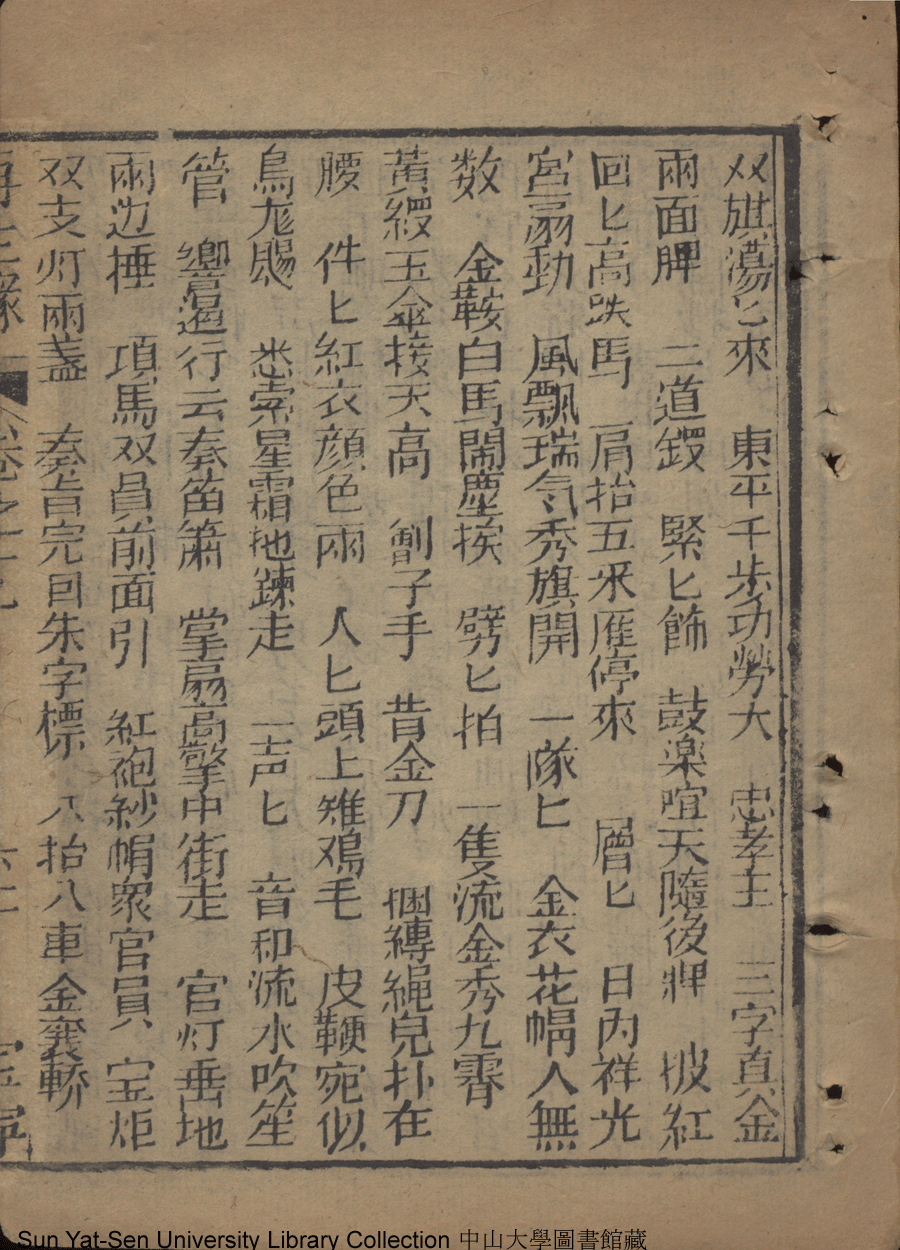 双旗蕩匕來　東平千步功勞大　忠孝王　三字真金
兩面牌　二道鑼　緊匕篩　鼓楽喧天隨後牌　披紅
回匕高跌馬　肩抬五釆雁停來　層匕　日內祥光
宮扇動　風飄瑞氣秀旗開　一隊匕　金衣花帽人無
数　金鞍白馬鬧塵挨　劈匕拍　一隻流金秀九霄
黃縷玉傘接天高　劊子手　昔金刀　捆縛繩兒扑在
腰　件匕紅衣顔色兩　人匕頭上雉鳮毛　皮鞭宛似
烏龙　悉索星霜拖疎走　一声匕　音和流水吹笙
管　響遏行云奏笛簫　掌扇高擎中街走　官灯垂地
兩边捶　項馬双員前面引　紅袍紗帽衆官員　宝炬
双支灯兩盞　奏旨完回朱字標　八抬八車金襄轎
再生緣　卷之十九　六十　宝寧
Sun Yat-Sen University Library Collection 中山大學圖書館藏